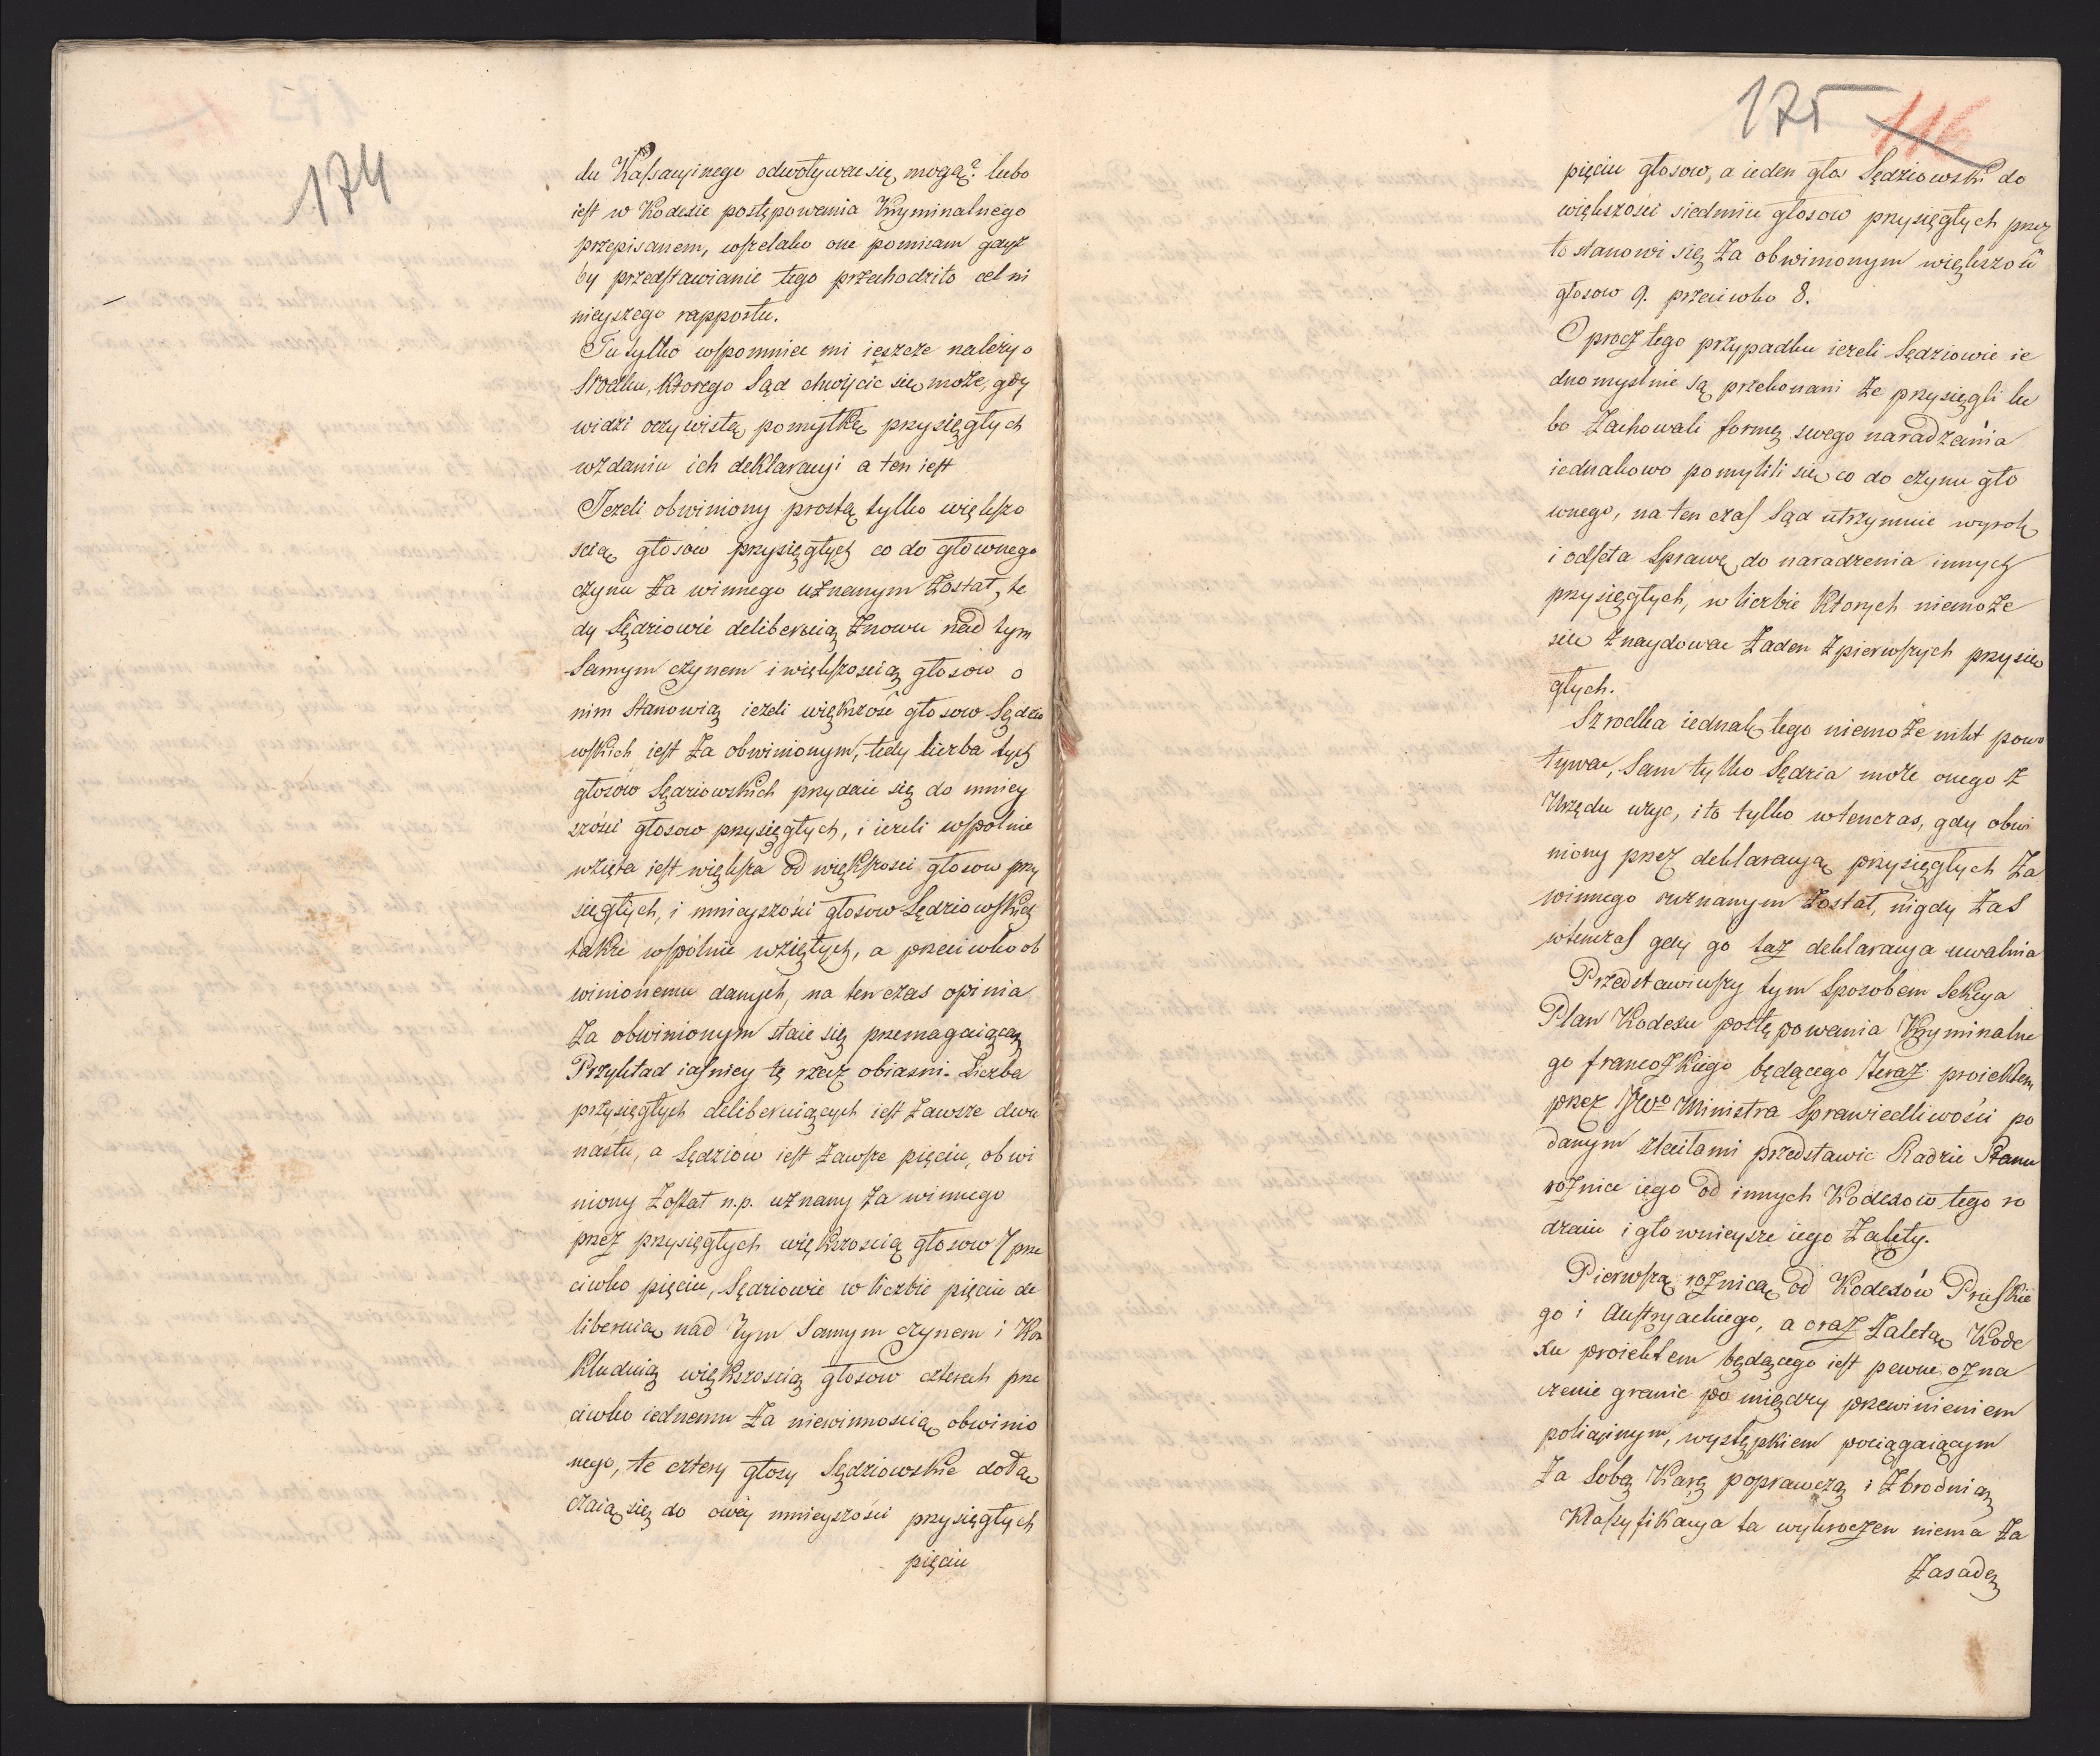 174
du Kassacyinego odwoływać się mogą? lubo
iest w Kodexie postępowania Kryminalnego
przepisanem, wszelako one pomiiam gdyż
by przedstawianie tego przechodziło cel ni
nieyszego rapportu.
Tu tylko wspomnieć mi ieszcze należy o
srodku, ktorego Sąd chwycić się może, gdy
widzi oczywistą pomyłkę przysięgłych
w zdaniu ich deklaracyi a ten iest
Jeżeli obwiniony prostą tylko większo
scią głosow przysięgłych co do głownego
czynu za winnego uznanym został, te
dy Sędziowie deliberuią znowu nad tym
samym czynem i większoscią głosow o
nim stanowią ieżeli większość głosow Sędzio
wskich iest za obwinionym, tedy liczba tych
głosow Sędziowskich przydaie się do mniey
szości głosow przysięgłych, i ieżeli wspolnie
wzięta iest większa od większosci głosow przy
sięgłych, i mnieyszości głosow Sędziowskich
także wspolnie wziętych, a przeciwko ob
winionemu danych, na ten czas opinia
za obwinionym staie się przemagaiącą
Przykład iasniey tę rzecz obiasni. Liczba
przysięgłych deliberuiących iest zawsze dwu
nastu, a Sędziow iest zawsze pięciu, obwi
niony został n.p. uznany za winnego
przez przysięgłych większoscią głosow 7 prze
ciwko pięciu, Sędziowie w liczbie pięciu de
liberuią nad tym samym czynem i Kon
kluduią większoscią głosow czterech prze
ciwko iednemu za niewinnoscią obwinio
nego, te cztery głosy Sędziowskie dołą
czaią się do owey mnieyszości przysięgłych
pięciu
175 116
pięciu głosow, a ieden głos Sędziowski do
większosci siedmiu głosow przysięgłych przez
to stanowi się za obwinionym większość
głosow 9. przeciwko 8.
Oprocz tego przypadku ieżeli Sędziowie ie
dnomyslnie są przekonani że przysięgli lu
bo zachowali formę swego naradzenia
iednakowo pomylili się co do czynu gło
wnego, na ten czas Sąd utrzymuie wyrok
i odseła Sprawę do naradzenia innych
przysięgłych, w liczbie ktorych niemoże
się znaydować żaden z pierwszych przysię
głych.
Szrodka iednak tego niemoże nikt powo
ływać, Sam tylko Sędzia może onego z
Urzędu użyć, i to tylko wtenczas, gdy obwi
niony przez deklaracyą przysięgłych za
winnego uznanym został, nigdy zaś
wtenczas gdy go taż deklaracya uwalnia
Przedstawiwszy tym sposobem Sekcya
Plan Kodexu postępowania Kryminalne
go francozkiego będącego teraz proiektem
przez JWo Ministra Sprawiedliwości po
danym zleciłami przedstawić Radzie Stanu
rożnice iego od innych Kodexow tego ro
dzaiu i głownieysze iego zalety.
Pierwszą rożnicą od Kodexów Pruskie
go i Austryackiego, a oraz zaletą Kode
xu proiektem będącego iest pewne ozna
czenie granic po między przewinieniem
policyinym, występkiem pociągaiącym
za sobą Karę poprawczą i zbrodnią
Klassyfikacya ta wykroczeń niema za
zasadę